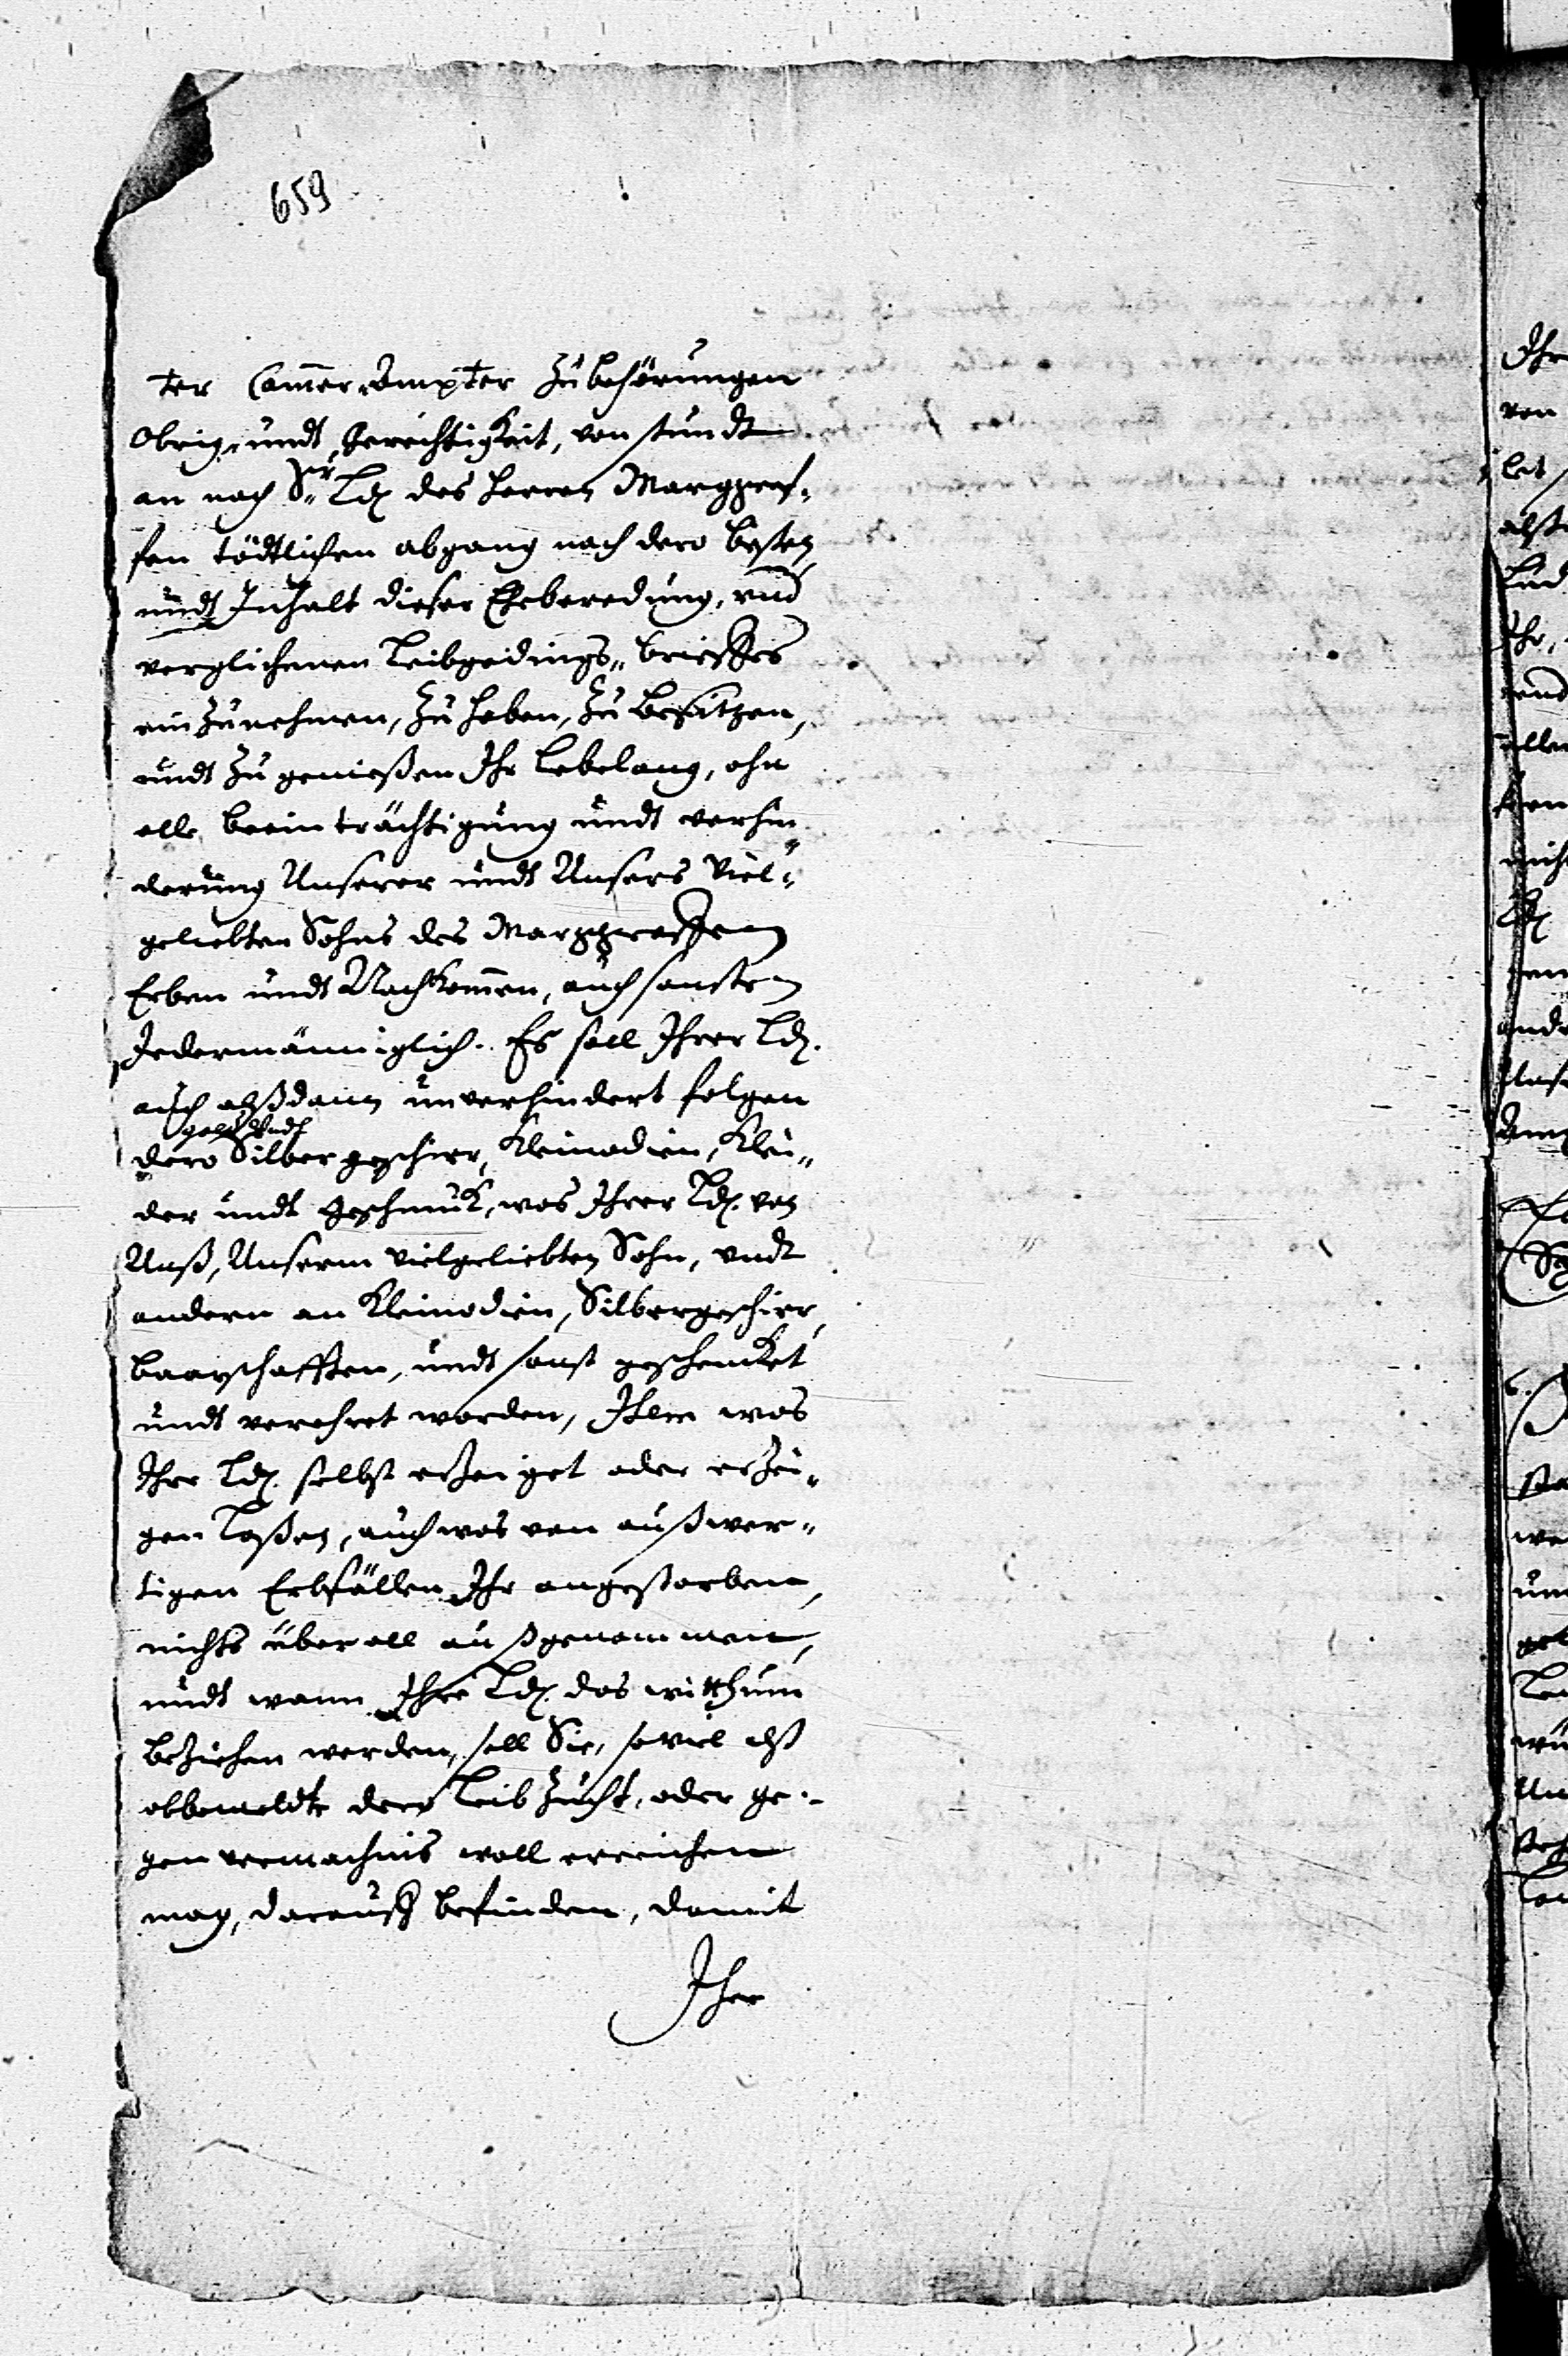 659
ter Cam̄er Ämpter Zubehörungen
Obrig- undt Gerechtigkeit, von stundt
an nach Sr. Ld. des Herren Marggraf-
fen tödtlichen abgang nach dero besten
undt Inhalt dieser Eheberedung, vnd
verglichenen Leibgedings„ brieffes
einzunehmen, Zu haben, Zu besitzen,
undt Zu genießen Ihr Lebelang, ohn
alle beeinträchtigung undt verhin-
derung Unserer undt Unsers Viel-
geliebten Sohns des Marggraffen
Erben undt Nachkom̄en, auch sonsten
Jedermänniglich. Es soll Ihrer Ld.
auch alßdann unverhindert folgen
gold Vndt
dero Silbergeschirr, Kleinodien, Klei„
der undt Geschmuk, was Ihrer Ld. von
Unß, Unserm Vielgeliebten Sohn, Vndt
andern an Kleinodien, Silbergeschirr,
baarschafften, undt sonst geschencket
undt verehret worden, Item was
Ihre Ld. selbst erzeiget oder erzei„
gen laßen, auch was von außwer„
tigen Erbfällen Ihr angestorben,
nichts überall außgenommen,
undt wann Ihre Ld. das witthum
beziehen werden, soll Sie, soviel alß
obbemeldte dero Leib Zucht, oder ge-
gen vermachnis woll erreichen
mag, darauß befinden, damit
Ihre